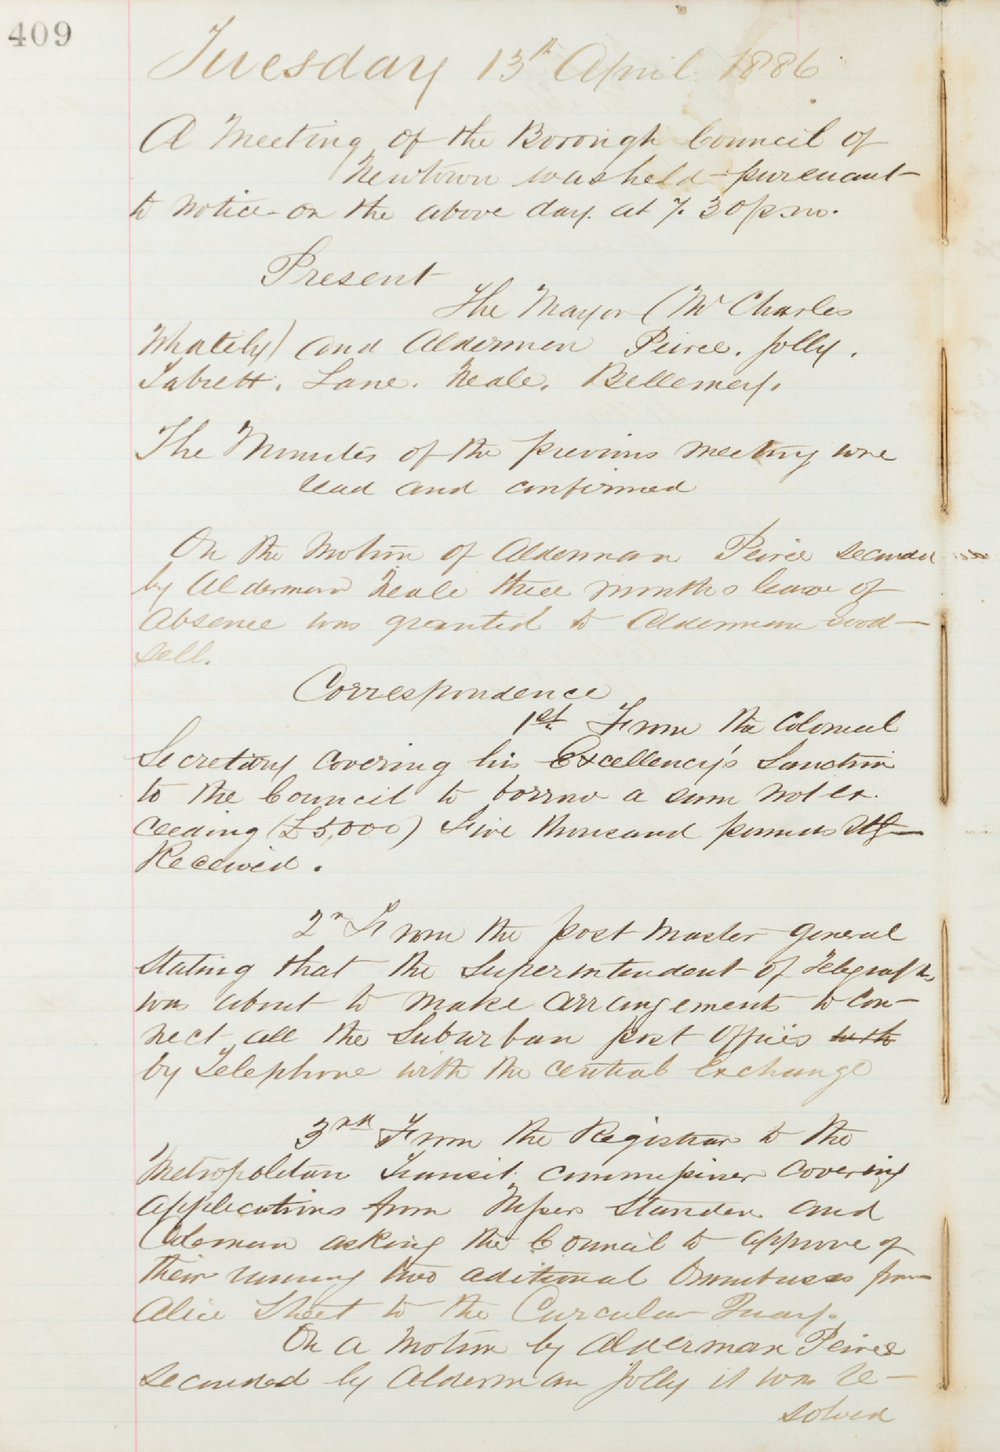 409
Tuesday 13th April 1886
A Meeting of the Borough Council of
Newtown was held pursuant
to notice on the above day. at 7.30 p.m.
Present
The Mayor (Mr Charles
Whately) and Aldermen Peiree. Jolly.
Tabrett. Lane. Neale. Bellemey.
The Minutes of the previous meeting were
read and confirmed
On the Motion of Alderman Peiree seconded
by Alderman Neale three months leave of
Absence was granted to Alderman Good-
sell.
Correspondence
1st. From the Colonial
Secretary covering his Excellency's Sanction
to the Council to borrow a sum not ex
ceeding (£5,000) Five thousand pounds
Received.
2n From the post Master General
stating that the Superintendent of Telegraphs
was about to make arrangements to con-
nect all the suburban post offices with
by Telephone with the central Exchange
3rd From the Registrar to the
Metropolitan Transit commissioner covering
applications from Messrs Standen and
Coleman asking the Council to approve of
their running two aditional Omnibuses from
Alice Street to the Curcular Quay.
On a motion by Alderman Peiree
seconded by Alderman Jolly it was re-
solved